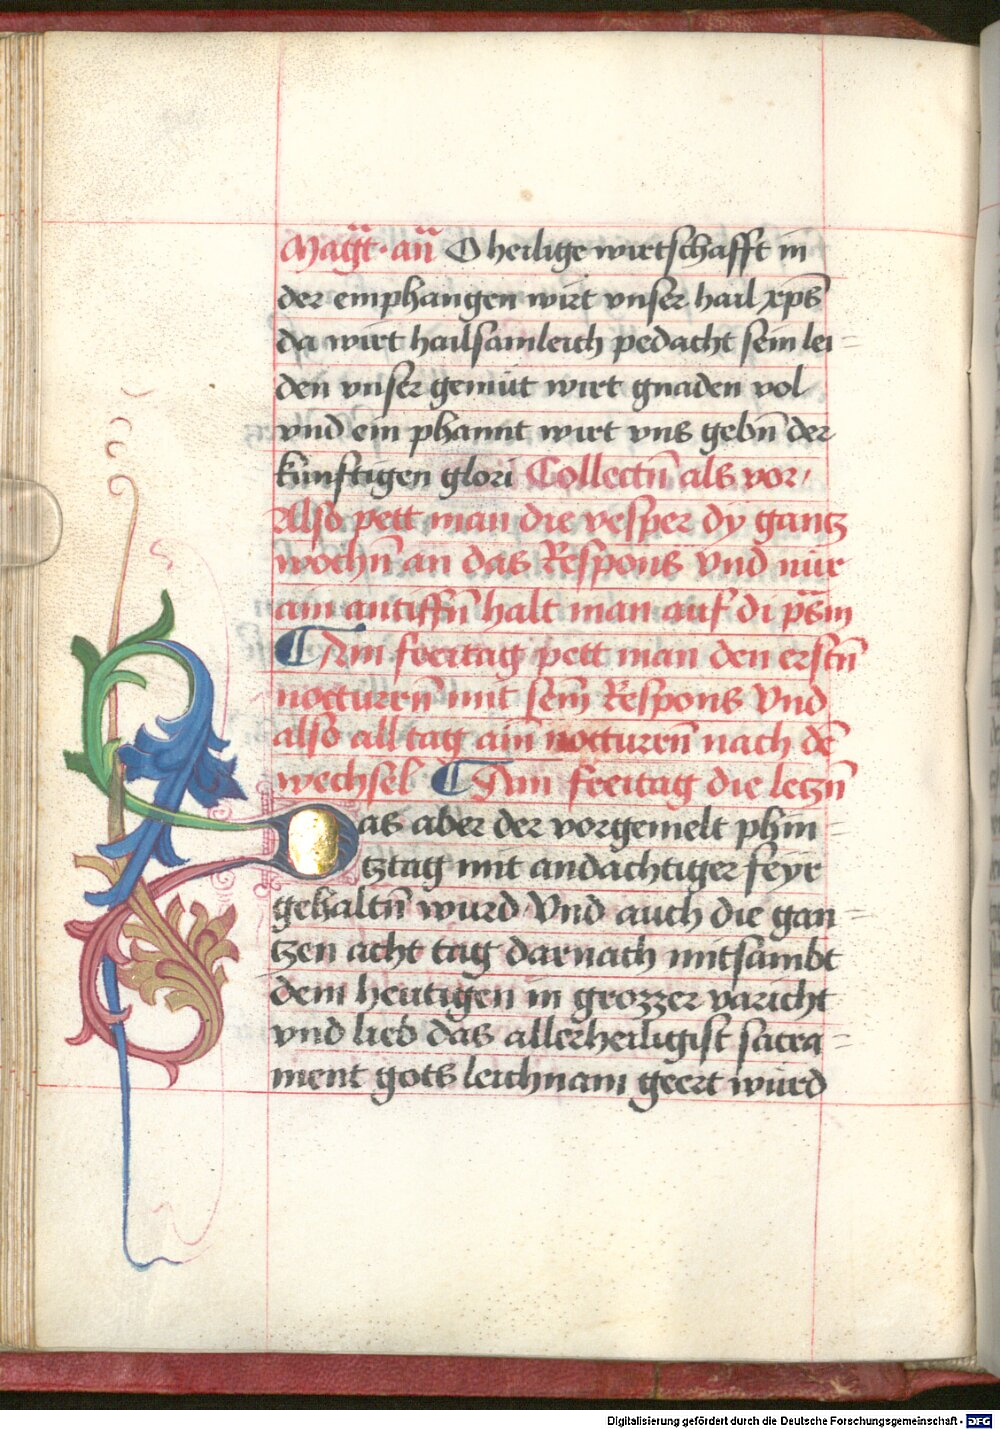 Mag̃t · an̄ O heilige wirtschafft in
der emphangen wirt vnser hail xp̄s
da wirt hailsamleich pedacht sein lei=
den vnser gemüt wirt gnaden vol
vnd ein phannt wirt vns gebn̄ der
künftigen glori Collectn̄ als vor /
Also pett man die vesper dy gantz
wochn̄ an das Respons Vnd nür
ain antiffn̄ halt man auf di ps̄m
Am freitag pett man den erstn̄
notturen̄ mit sein̄ Respons Vnd
also all tag ain notturen̄ nach dē
wechsel Am freitag die letzn̄
Das aber der vorgemelt phin=
tztag mit andachtiger feyr
gehaltn̄ wurd Vnd auch die gan=
tzen acht tag darnach mitsambt
dem heutigen in grozzer varicht
vnd lieb das allerheiligist sacra=
ment gots leichnam geert würd
Digitalisierung gefördert durch die Deutsche Forschungsgemeinschaft - DFG